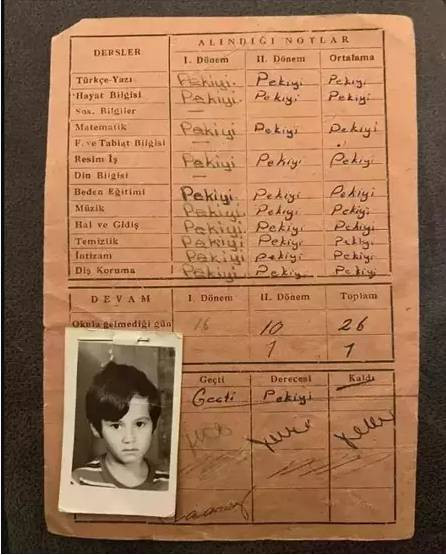 DERSLER ALINDIĞI NOTLAR
I. Dönem II. Dönem Ortalama
Türkçe-Yazı Pekiyi. Pekiyi Pekiyi
Hayat Bilgisi Pekiyi. Pekiyi Pekiyi
Sos. Bilgiler —
Matematik Pekiyi Pekiyi Pekiyi
F. ve Tabiat Bilgisi —
Resim İş Pekiyi Pekiyi Pekiyi
Din Bilgisi —
Beden Eğitimi Pekiyi Pekiyi Pekiyi
Müzik Pekiyi Pekiyi Pekiyi
Hal ve Gidiş Pekiyi Pekiyi Pekiyi
Temizlik Pekiyi Pekiyi Pekiyi
İntizam Pekiyi Pekiyi Pekiyi
Diş Koruma Pekiyi Pekiyi Pekiyi
DEVAM I. Dönem II. Dönem Toplam
Okula gelmediği gün 16 10 26
1 1
Geçti Derecesi Kaldı
Geçti Pekiyi